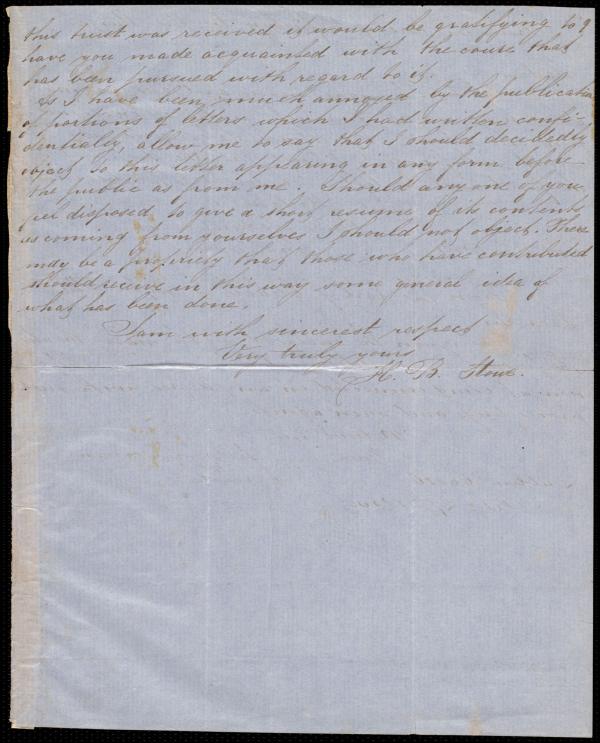 this trust was received it would be gratifying to
have you made acquainted with the course that
has been pursued with regard to it.
As I have been much annoyed by the publication
of portions of letters which I had written confi-
dentially, allow me to say that I should decidedly
object to this letter appearing in any form before
the public as from me. Should any one of you
feel disposed to give a short resume of its contents
as coming from yourselves I should not object. There
may be a propriety that those who have contributed
should receive in this way some general idea of
what has been done.
I am with sincerest respect
Very truly yours
H. B. Stowe.